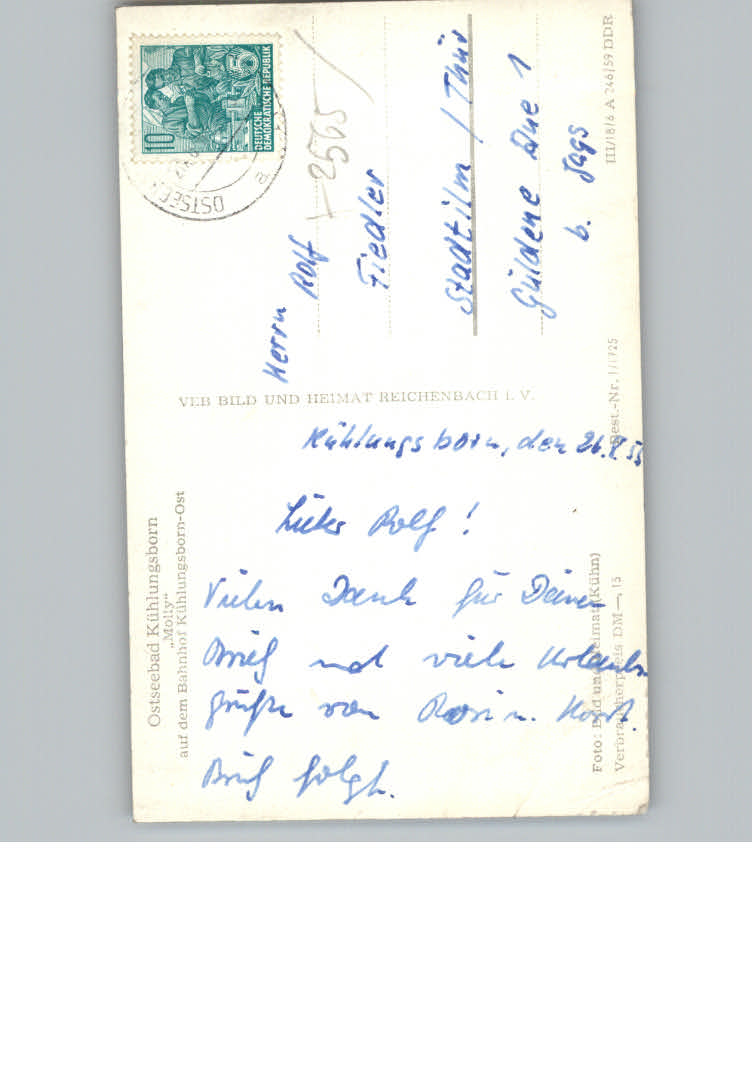 Ostseebad Kühlungsborn
„Molly“
auf dem Bahnhof Kühlungsborn-Ost
Kühlungsborn, den 26.
Lieber Rolf!
Vielen Dank für Deinen
Brief und viele Urlaubs
grüße von Rosi u. Horst.
Brief folgt.
Foto: Bild und Heimat (Kühn)
Verbraucherpreis DM —,15
VEB BILD UND HEIMAT REICHENBACH I. V.
10
DEUTSCHE
DEMOKRATISCHE REPUBLIK
OSTSEEB
a
2565
Herrn Rolf
Fiedler
Stadtilm / Thür
Güldene Aue 1
b.
III/18/6 A 246/59 DDR
Best.-Nr.